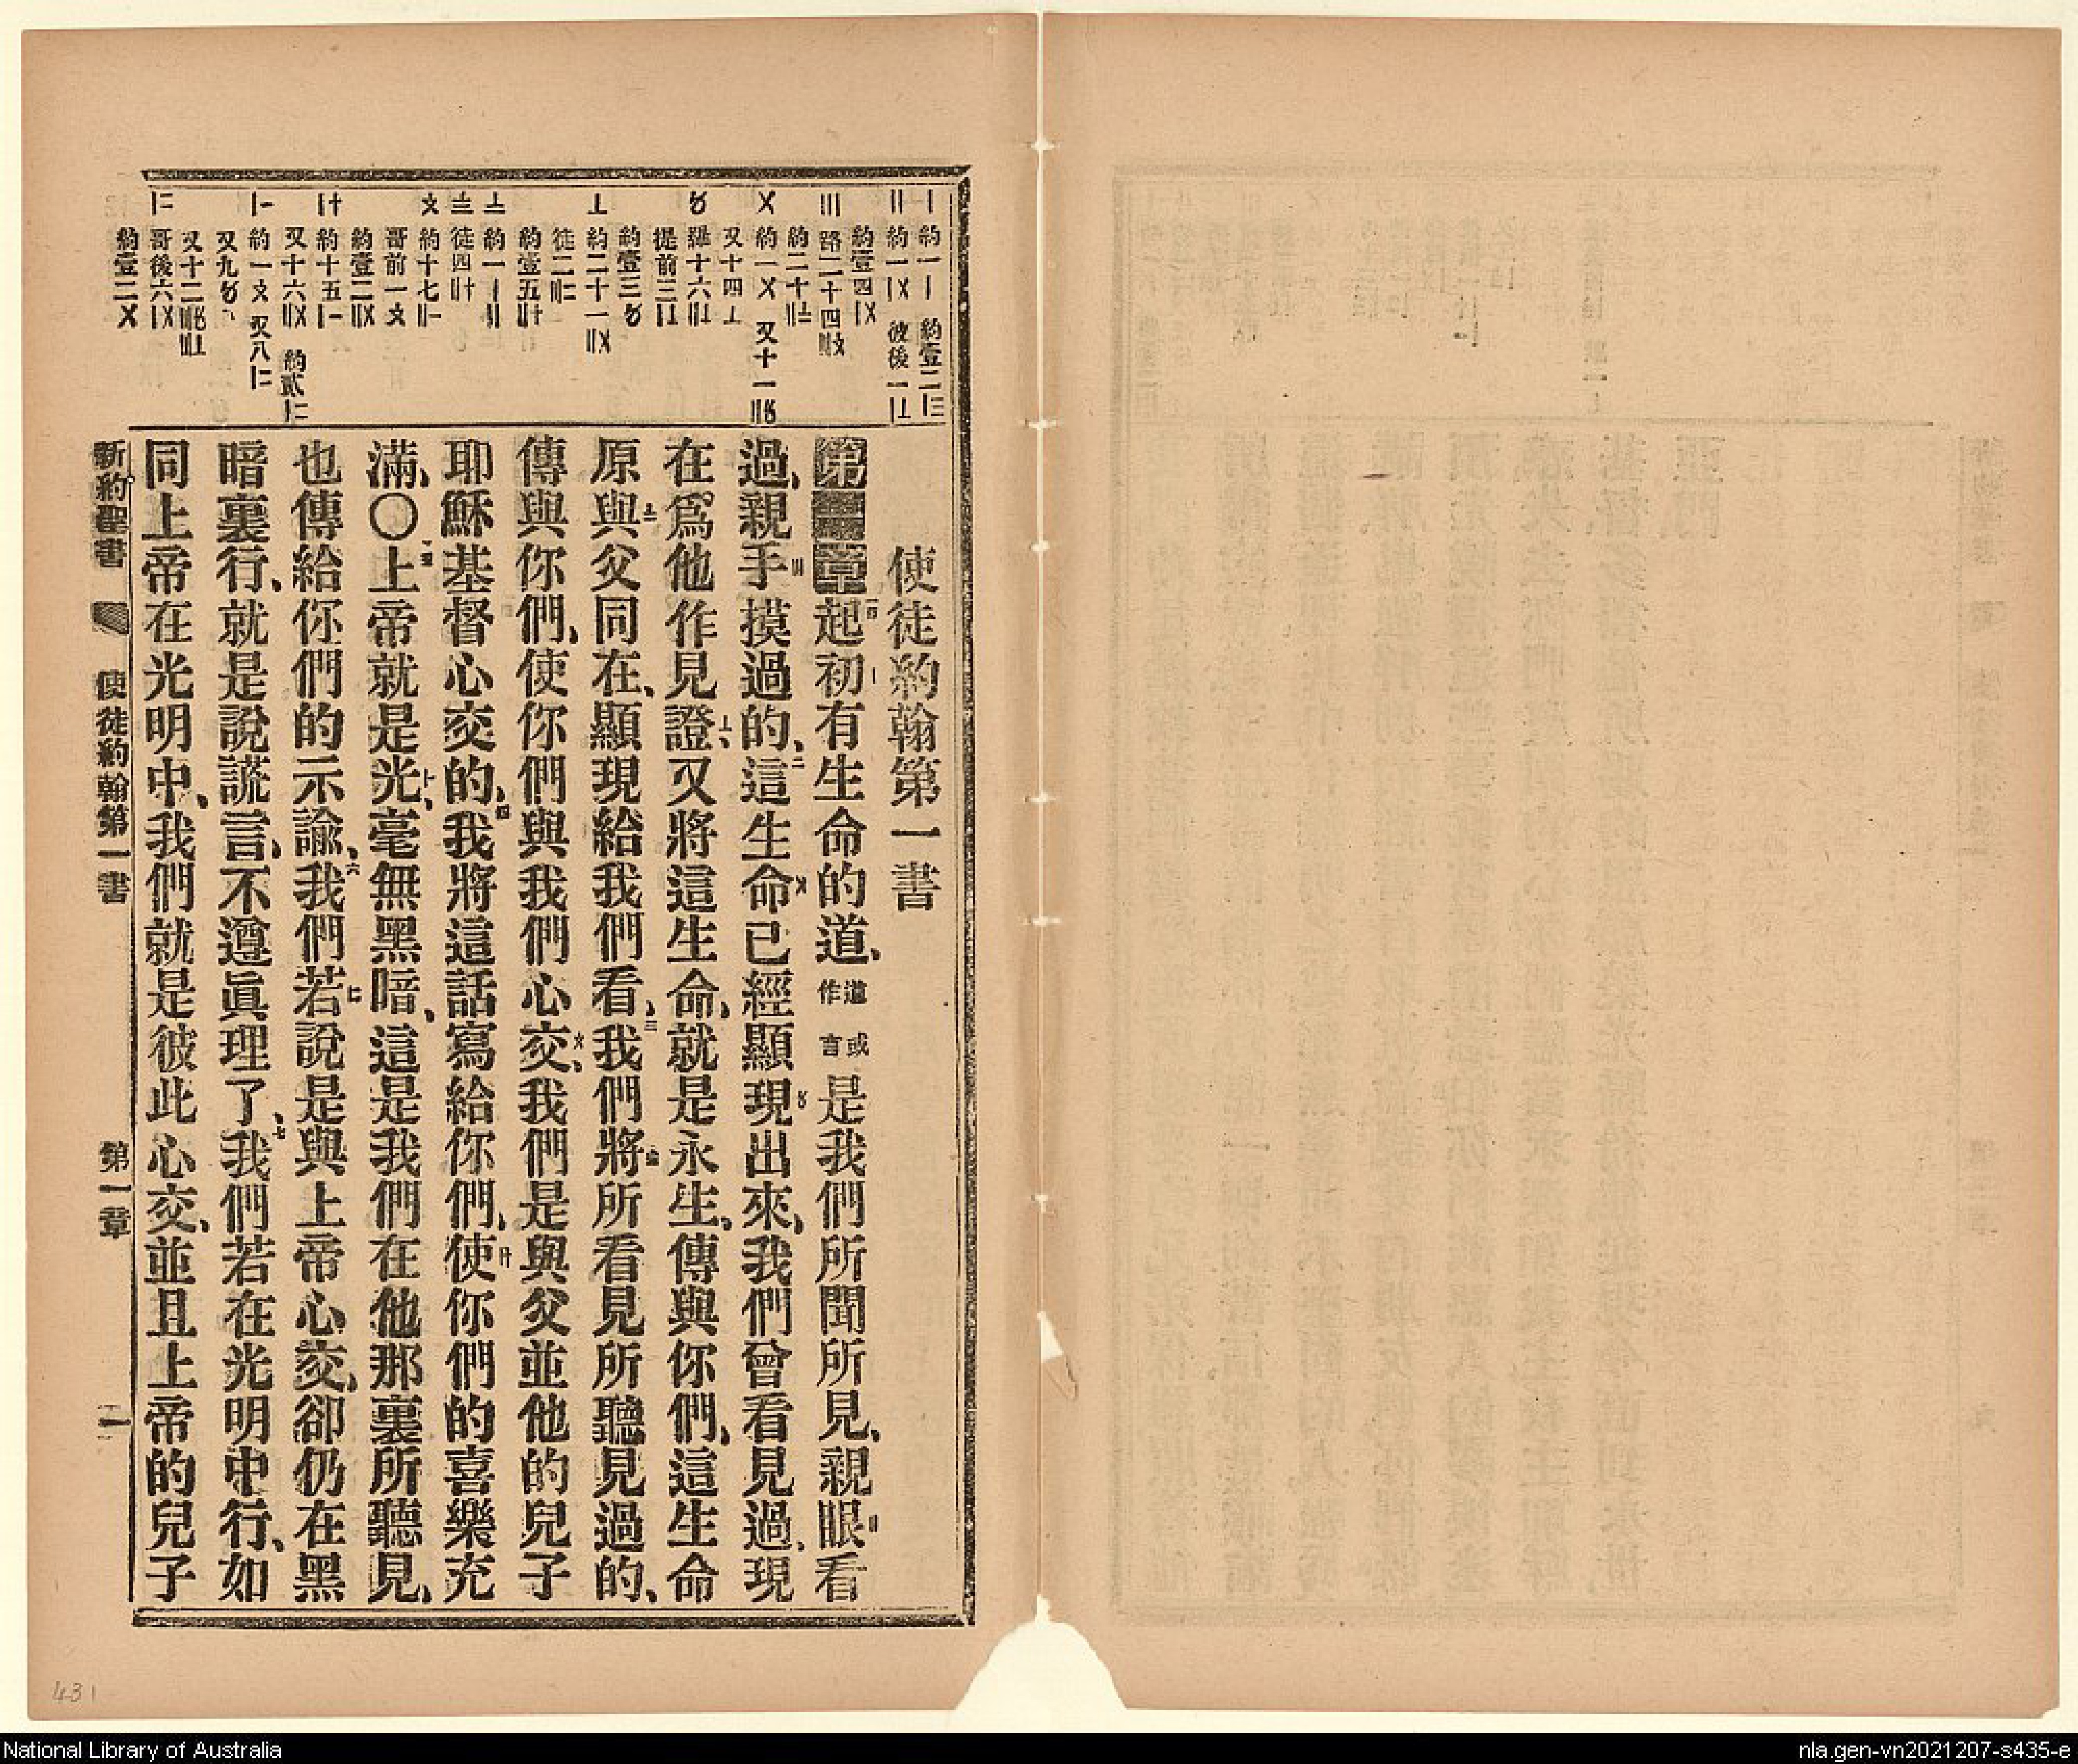 使徒約翰第一書
第一章起初有生命的道、道或作言是我們所聞所見、親眼看
過、親手摸過的、這生命已經顯現出來、我們曾看見過、現
在爲他作見證、又將這生命、就是永生、傳與你們、這生命
原與父同在、顯現給我們看、我們將所看見所聽見過的、
傳與你們、使你們與我們心交、我們是與父並他的兒子
耶穌基督心交的、我將這話寫給你們、使你們的喜樂充
滿、〇上帝就是光、毫無黑暗、這是我們在他那裏所聽見、
也傳給你們的示諭、我們若說是與上帝心交、卻仍在黑
暗裏行、就是說謊言、不遵眞理了、我們若在光明中行、如
同上帝在光明中、我們就是彼此心交、並且上帝的兒子
新約聖書 使徒約翰第一書 第一章 一
〡 約一〡 約壹二〡三
〢 約一〡〤 彼後一〡〦
約壹四〡〤
〣 路二十四〣〩
約二十〢〧
〤 約一〤 又十一〢〥
又十四〦
〥 羅十六〢〦
提前三〡〦
約壹三〥
〦 約二十一〢〤
徒二〣〢
約壹五〢十
〧 約一〡〢
〨 徒四〢十
〩 約十七〢一
哥前一〩
約壹二〢〤
十 約十五〡一
又十六〢〤 約貳〡二
〡一 約一〩 又八〡二
又九〥
又十二〣〥 〣〦
〡二 哥後六〡〤
約壹二〤
431
National Library of Australia
nla.gen-vn2021207-s435-e